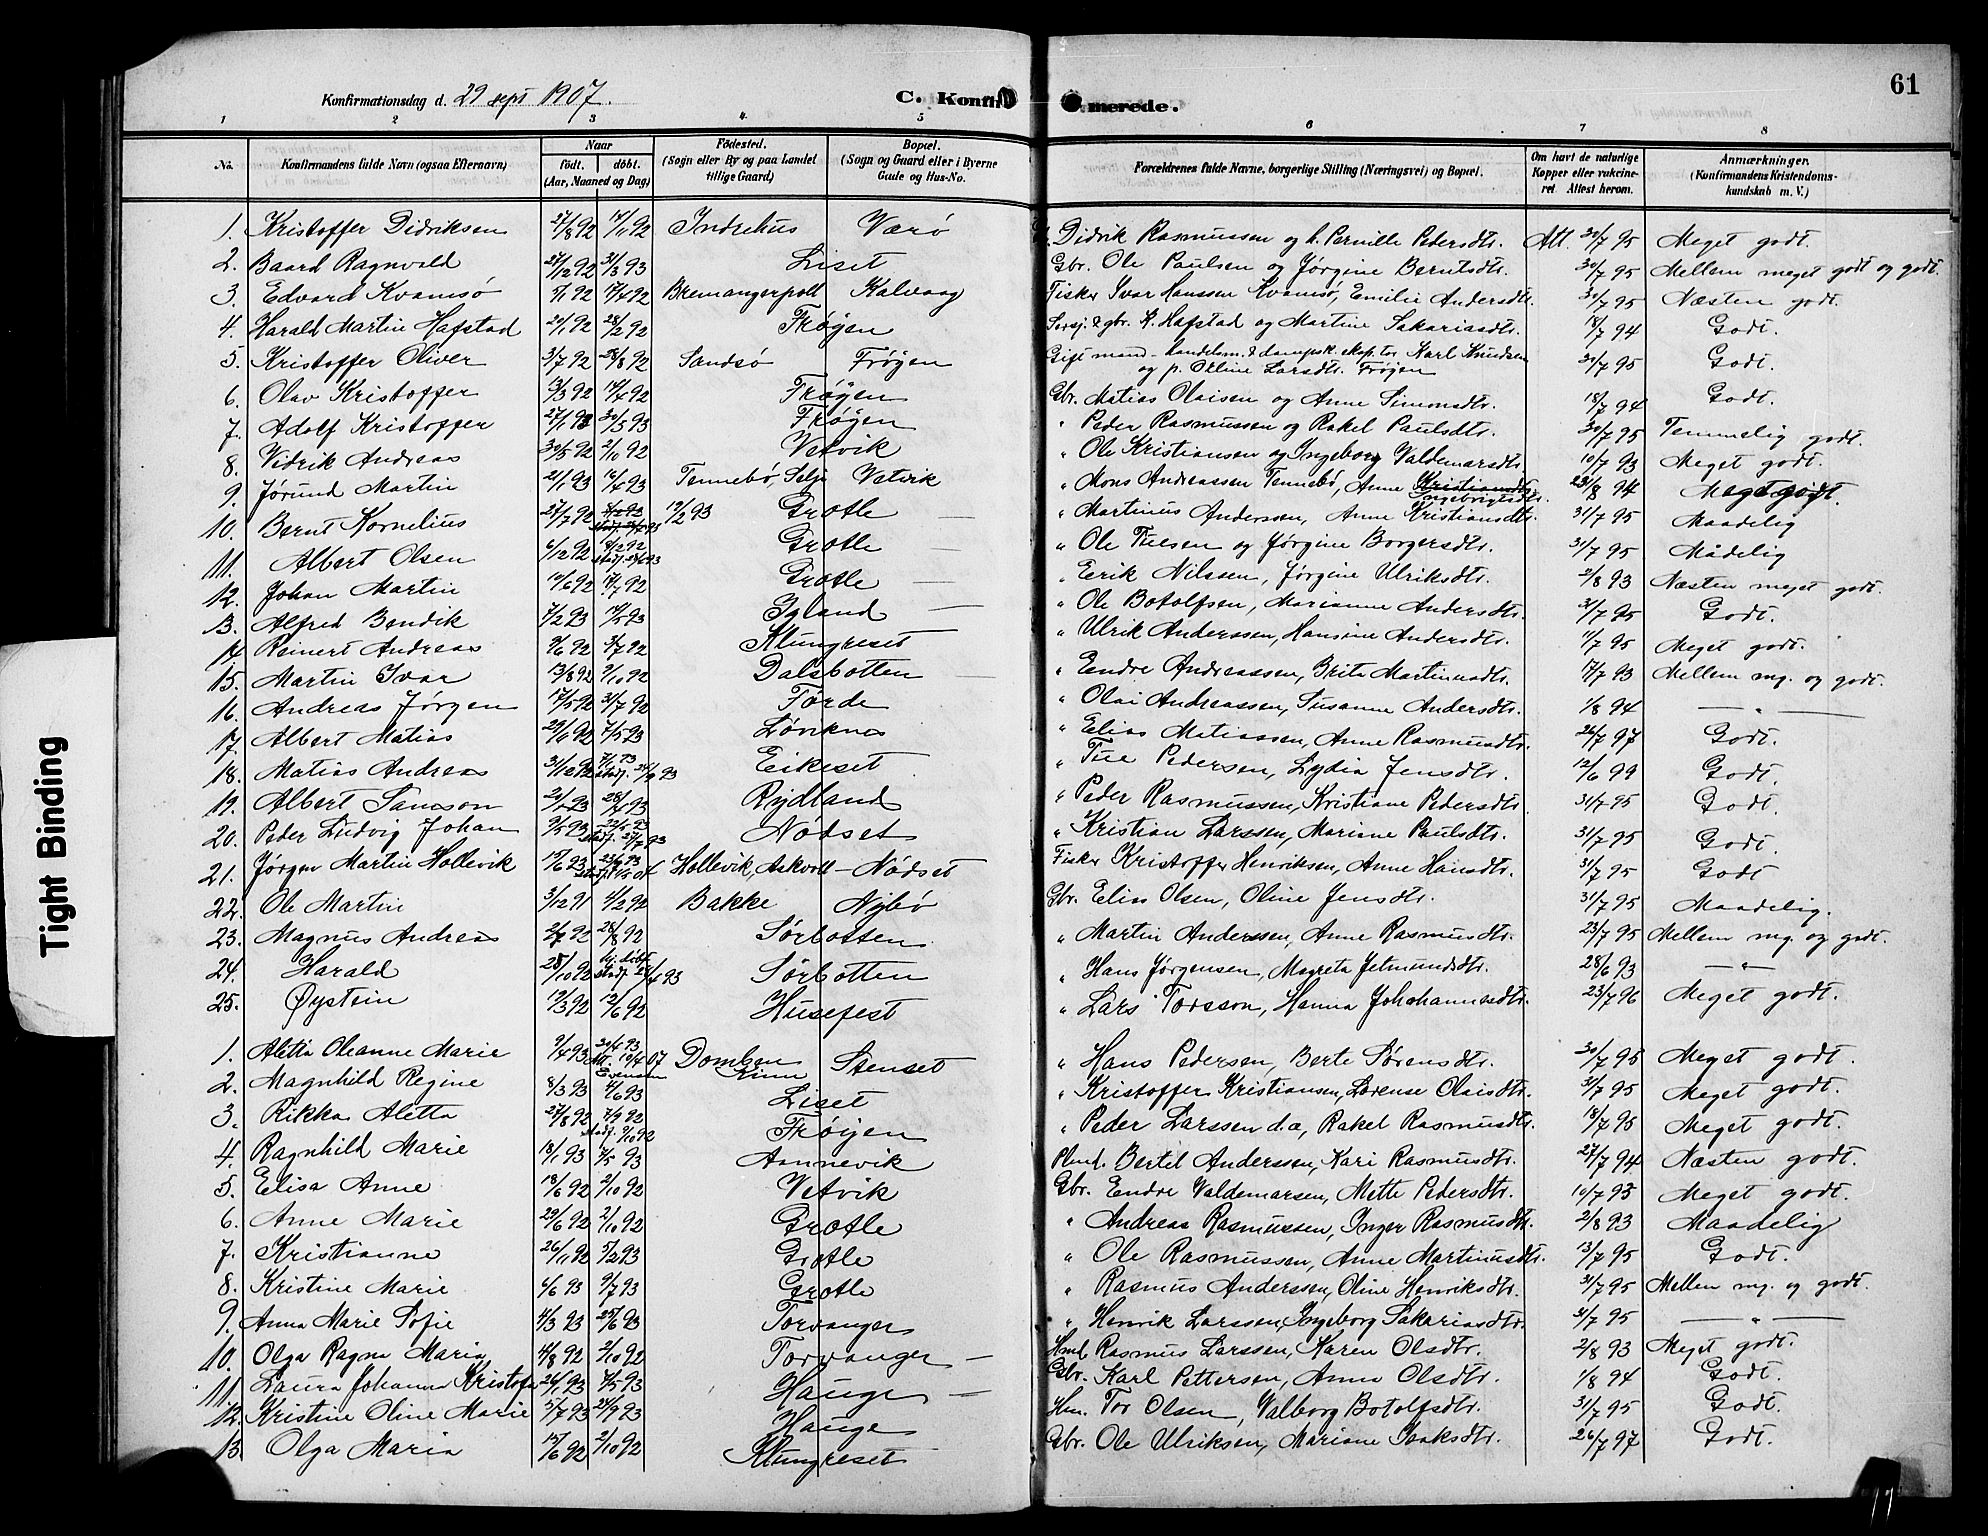 Konfirmationsdag d. 29 sept 1907. C. Konfirmerede. 61
1 2 3 4 5 6 7 8
No. Konfirmandens fulde Navn (ogsaa Efternavn) Naar født. døbt. (Aar, Maaned og Dag) Fødested. (Sogn eller By og paa Landet tillige Gaard) Bopæl. (Sogn og Gaard eller i Byerne Gade og Hus-No. Forældrenes fulde Navne, borgerlige Stilling (Næringsvei) og Bopæl. Om havt de naturlige Kopper eller vakcineret Attest herom. Anmærkninger. (Konfirmandens Kristendomskundskab m. V.)
1. Kristoffer Didriksen 27/8 92 Indrehus Værø Didrik Rasmussen og h. Pernille Pedersdtr. Att. 30/7 95 Meget godt.
2. Baard Ragnvald 27/12 92 31/3 93 Liset Gbr. Ole Paulsen og Jørgine Berntsdtr. 30/7 95 Mellem meget godt og godt.
3. Edvard Kvamsø 17/4 92 Bremangerpoll Kalvaag Fisker Ivar Hanssen Kvamsø, Emilie Andersdtr. 30/7 95 Næsten godt.
4. Harald Martin Hafstad 20/1 92 28/2 92 Frøyen & gbr. Hafstad og Martine Sakariasdtr. 18/7 94 Godt.
5. Kristoffer Oliver 3/7 92 28/8 92 Sandsø Frøyen Gift mand - handelsm. & dampsk. eksp.tør Karl Knudsen 30/7 95 Godt.
og p. Oline Larsdtr. Frøyen
6. Olav Kristoffer 13/3 92 17/4 92 Frøyen Gbr. Matias Olaisen og Anne Simonsdtr. 18/7 94 Godt.
7. Adolf Kristoffer 30/5 93 Frøyen " Peder Rasmussen og Rakel Paulsdtr. 30/7 95 Temmelig godt.
8. Vidrik Andreas 30/5 92 2/10 92 Vetvik " Ole Kristiansen og Ingeborg Valdemarsdtr. 10/7 93 Meget godt.
9. Jørund Martin 21/1 93 16/4 93 Tennebø, Selje Vetvik " Mons Andreassen Tennebø, Anne Kristiansdtr Ingebrigtsdtr. 23/8 94 Meget godt.
10. Bernt Kornelius 27/7 92 12/2 93 Grotle " Martinus Andersen, Anne Kristiansdtr. 31/7 95 Maadelig
11. Albert Olsen 6/12 92 8/12 92 Grotle " Ole Tuesen og Jørgine Borgersdtr. 31/7 95 Mådelig
12. Johan Martin 10/6 92 17/7 92 Grotle " Eerik Nilssen, Jørgine Ulriksdtr. 2/8 93 Næsten meget godt.
13. Alfred Bendik 7/2 93 14/5 93 Igland " Ole Botolfsen, Marianne Andersdtr. 31/7 95 Godt.
14 Reinert Andreas 9/6 92 3/7 92 Klungreset " Ulrik Anderssen, Hansine Andersdtr. 11/7 95 Meget godt.
15. Martin Ivar 13/8 92 9/10 92 Dalsbotten " Endre Andreassen, Brita Martinusdtr. 17/7 93 Mellem mg. og godt.
16. Andreas Jørgen 17/5 92 31/7 92 Førde " Olai Andreassen, Susanne Andersdtr. 1/8 94 — " —
17. Albert Matias 7/5 93 Løvknes " Elias Matiassen, Anne Rasmusdtr. 26/7 97 Godt.
18. Matias Andreas 31/12 92 Eikeset " Tue Pedersen, Lydia Jensdtr. 12/6 99 Godt.
19. Albert Samson Rydland " Peder Rasmussen, Kristiane Pedersdtr. 31/7 95 Godt.
20. Peder Ludvig Johan 9/5 93 Nödset " Kristian Larssen, Mariane Paulsdtr. 31/7 95 Godt.
21. Jørgen Martin Hollevik 15/6 93 Hollevik, Askvoll - Nødset Fisker Kristoffer Henriksen, Anne Hansdtr. 31/7 95 Godt
22. Ole Martin 3/12 91 4/2 92 Bakke Nybø Gbr. Elias Olsen, Oline Jensdtr. 31/7 95 Maadelig.
23. Magnus Andreas 2/7 92 28/8 92 Sørbotten " Martin Anderssen, Anne Rasmusdtr. 23/7 95 Mellem mg. og godt.
24. Harald 28/10 92 hj. døbt Sørbotten " Hans Jørgensen, Magreta Jetmundsdtr. 28/6 93 — " —
25. Øystein 19/3 92 12/6 92 Husefest " Lars Torsson, Hanna Johohannesdtr. 23/7 96 Meget godt.
1. Aletta Oleanne Marie 9/4 93 Domben Kinn Stenset " Hans Pedersen, Berte Sørensdtr. 30/7 95 Meget godt.
2. Magnhild Regine 8/3 93 4/6 93 Liset " Kristoffer Kristiansen, Lorense Olaisdtr. 31/7 95 Meget godt.
3. Rikka Aletta 27/8 92 Stadf. 9/10 92 Frøyen " Peder Larssen d.a, Rakel Rasmusdtr. 18/7 95 Meget godt.
4. Ragnhild Marie 18/1 93 7/5 93 Aannevik Plmd. Bertel Anderssen, Kari Rasmusdtr. 27/7 94 Næsten godt.
5. Elisa Anne 18/6 92 2/10 92 Vetvik Gbr. Endre Valdemarsen, Mette Pedersdtr. 10/7 93 Meget godt.
6. Anne Marie 29/6 92 2/10 92 Grotle " Andreas Rasmussen, Inger Rasmusdtr. 2/8 93 Maadelig
7. Kristianne 26/11 92 5/2 93 Grotle " Ole Rasmussen, Anne Martinusdtr. 13/7 95 Godt.
8. Kristine Marie 4/6 93 9/7 93 Grotle " Rasmus Anderssen, Oline Henriksdtr. 31/7 95 Mellem mg. og godt.
9. Anna Marie Sofie 4/3 93 25/6 93 Torvanger " Henrik Larssen, Ingeborg Sakariasdtr. 31/7 95 — " —
10. Olga Ragna Maria 4/8 92 2/10 92 Torvanger Hmd. Rasmus Larssen, Karen Olsdtr. 2/8 93 Meget godt.
11. Laura Johanna Kristofa 26/1 93 7/5 93 Hauge Gbr. Karl Pettersen, Anna Olsdtr. 1/8 94 Godt.
12. Kristine Oline Marie 5/7 93 24/9 93 Hauge Hm. Tor Olsen, Valborg Botolfsdtr. 31/7 95 Godt.
13. Olga Maria 15/6 92 2/10 92 Klungreset Gbr. Ole Ulriksen, Mariane Isaksdtr. 26/7 97 Godt.
Tight Binding